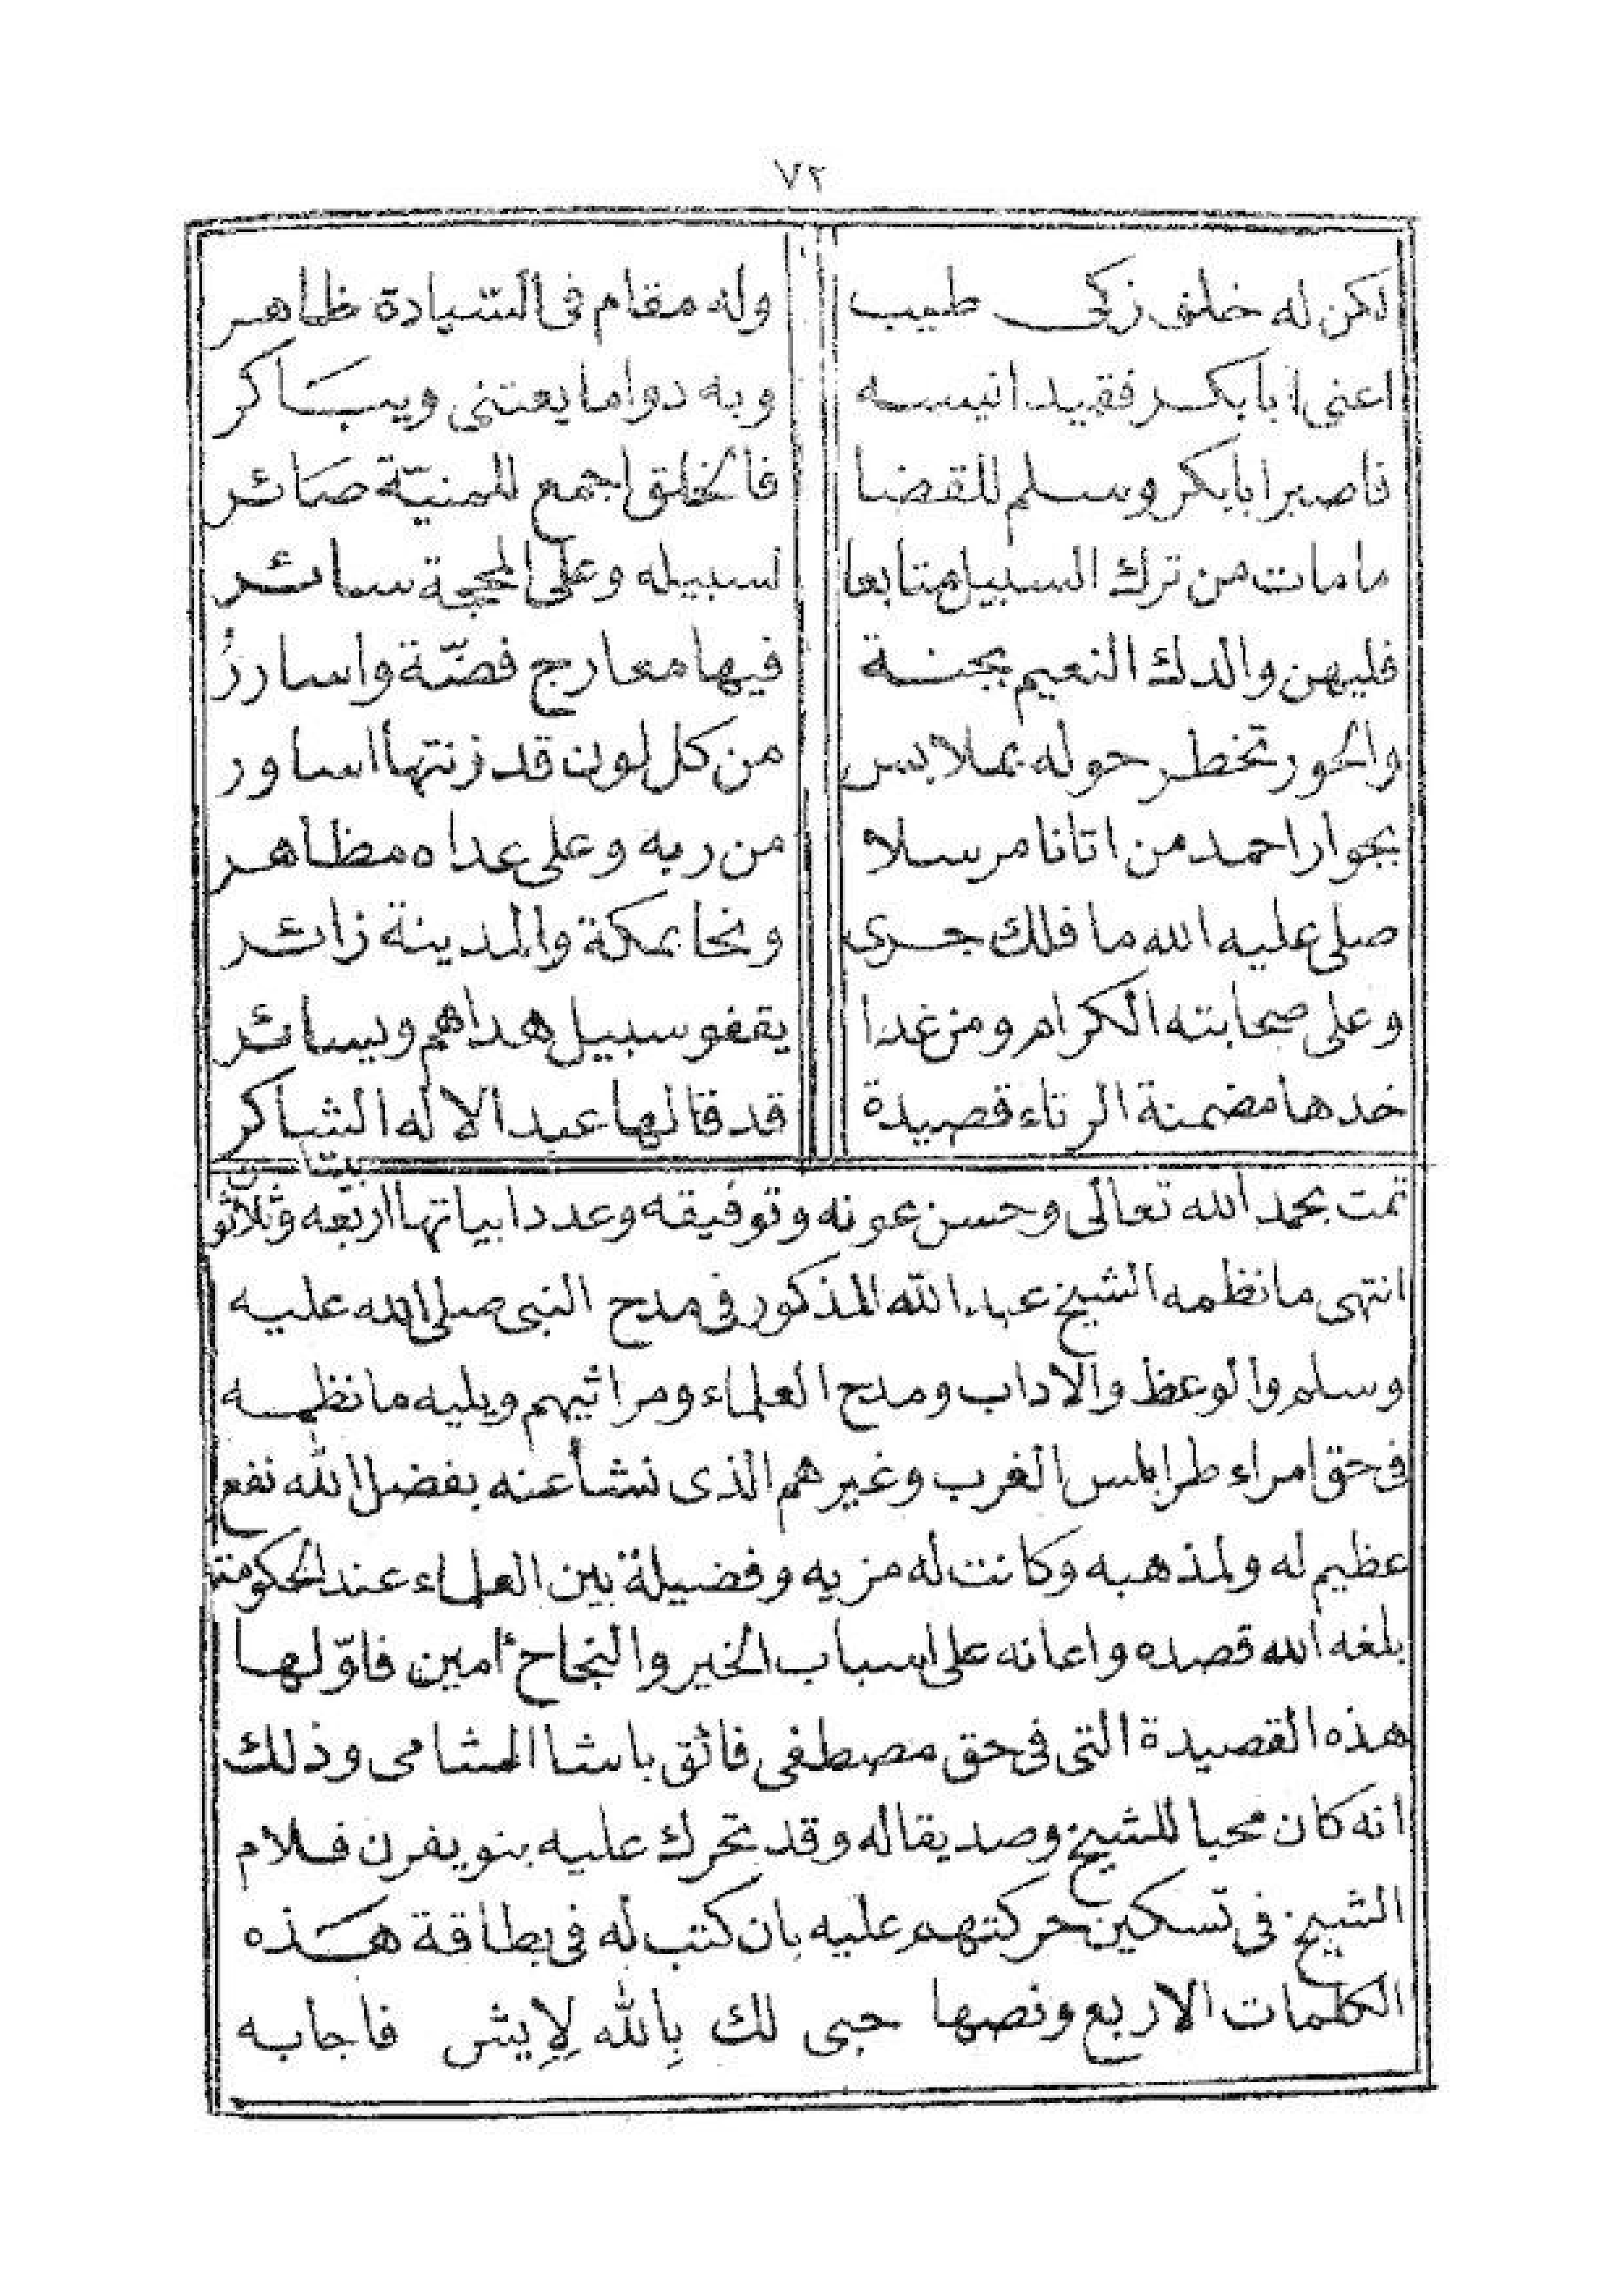 ٧٢
لكن له خلق زكى طيب وله مقام فى السيادة ظاهر
اعنى ابا بكر فقيد انيسه وبه دواما يعتنى ويباكر
فاصبر ابا بكر وسلم للقضا فالخلق اجمع للمنيّة صائر
ما مات من ترك السبيل متابعا لسبيله وعلى المحجة سائر
فليهن والدك النعيم بجنة فيها معارج فضّة واساررُ
والحور تخطر حوله بملابس من كل لون قد زنتها اساور
بجوار احمد من اتانا مرسلا من ربه وعلى عداه مظاهر
صلى عليه الله ما فلك جرى ونحا بمكة والمدينة زائر
وعلى صحابته الكرام ومن غدا يقفو سبيل هداهم ويسائر
خدها مضمنة الرثاء قصيدة قد قالها عبد الاله الشاكر
تمت بحمد الله تعالى وحسن عونه وتوفيقه وعدد ابياتها اربعه وثلاثون بيتا
انتهى ما نظمه الشيخ عبد الله المذكور فى مدح النبى صلى الله عليه
وسلم والوعظ والاداب ومدح العلماء ومراثيهم ويليه ما نظمه
فى حق امراء طرابلس الغرب وغيرهم الذى نشأ عنه بفضل الله نفع
عظيم له ولمذهبه وكانت له مزيه وفضيلة بين العلماء عند الحكومة
بلغه الله قصده واعانه على اسباب الخير والنجاح أمين فاوّلها
هذه القصيدة التى فى حق مصطفى فائق باشا الشامى وذلك
انه كان محبا للشيخ وصديقا له وقد تحرك عليه بنو يفرن فلام
الشيخ فى تسكين حركتهم عليه بان كتب له فى بطاقة هذه
الكلمات الاربع ونصها حبى لك بِالله لِايش فاجابه